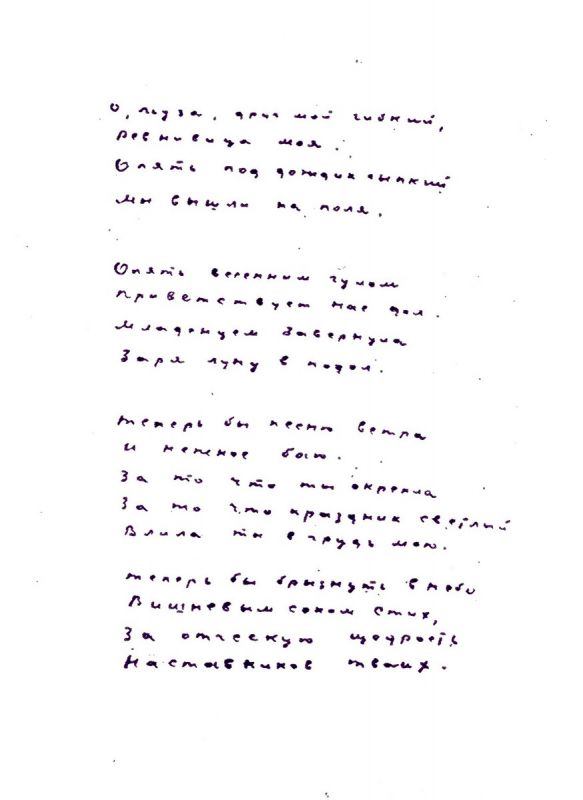 О, муза, друг мой гибкий,
Ревнивица моя.
Опять под дождик сыпкий
Мы вышли на поля.
Опять весенним гулом
Приветствует нас дол.
Младенцем завернула
Заря луну в подол.
Теперь бы песню ветра
И нежное баю.
За то что ты окрепла
За то что праздник светлый
Влила ты в грудь мою.
Теперь бы брызнуть в небо
Вишневым соком стих,
За отческую щедрость
Наставников твоих.